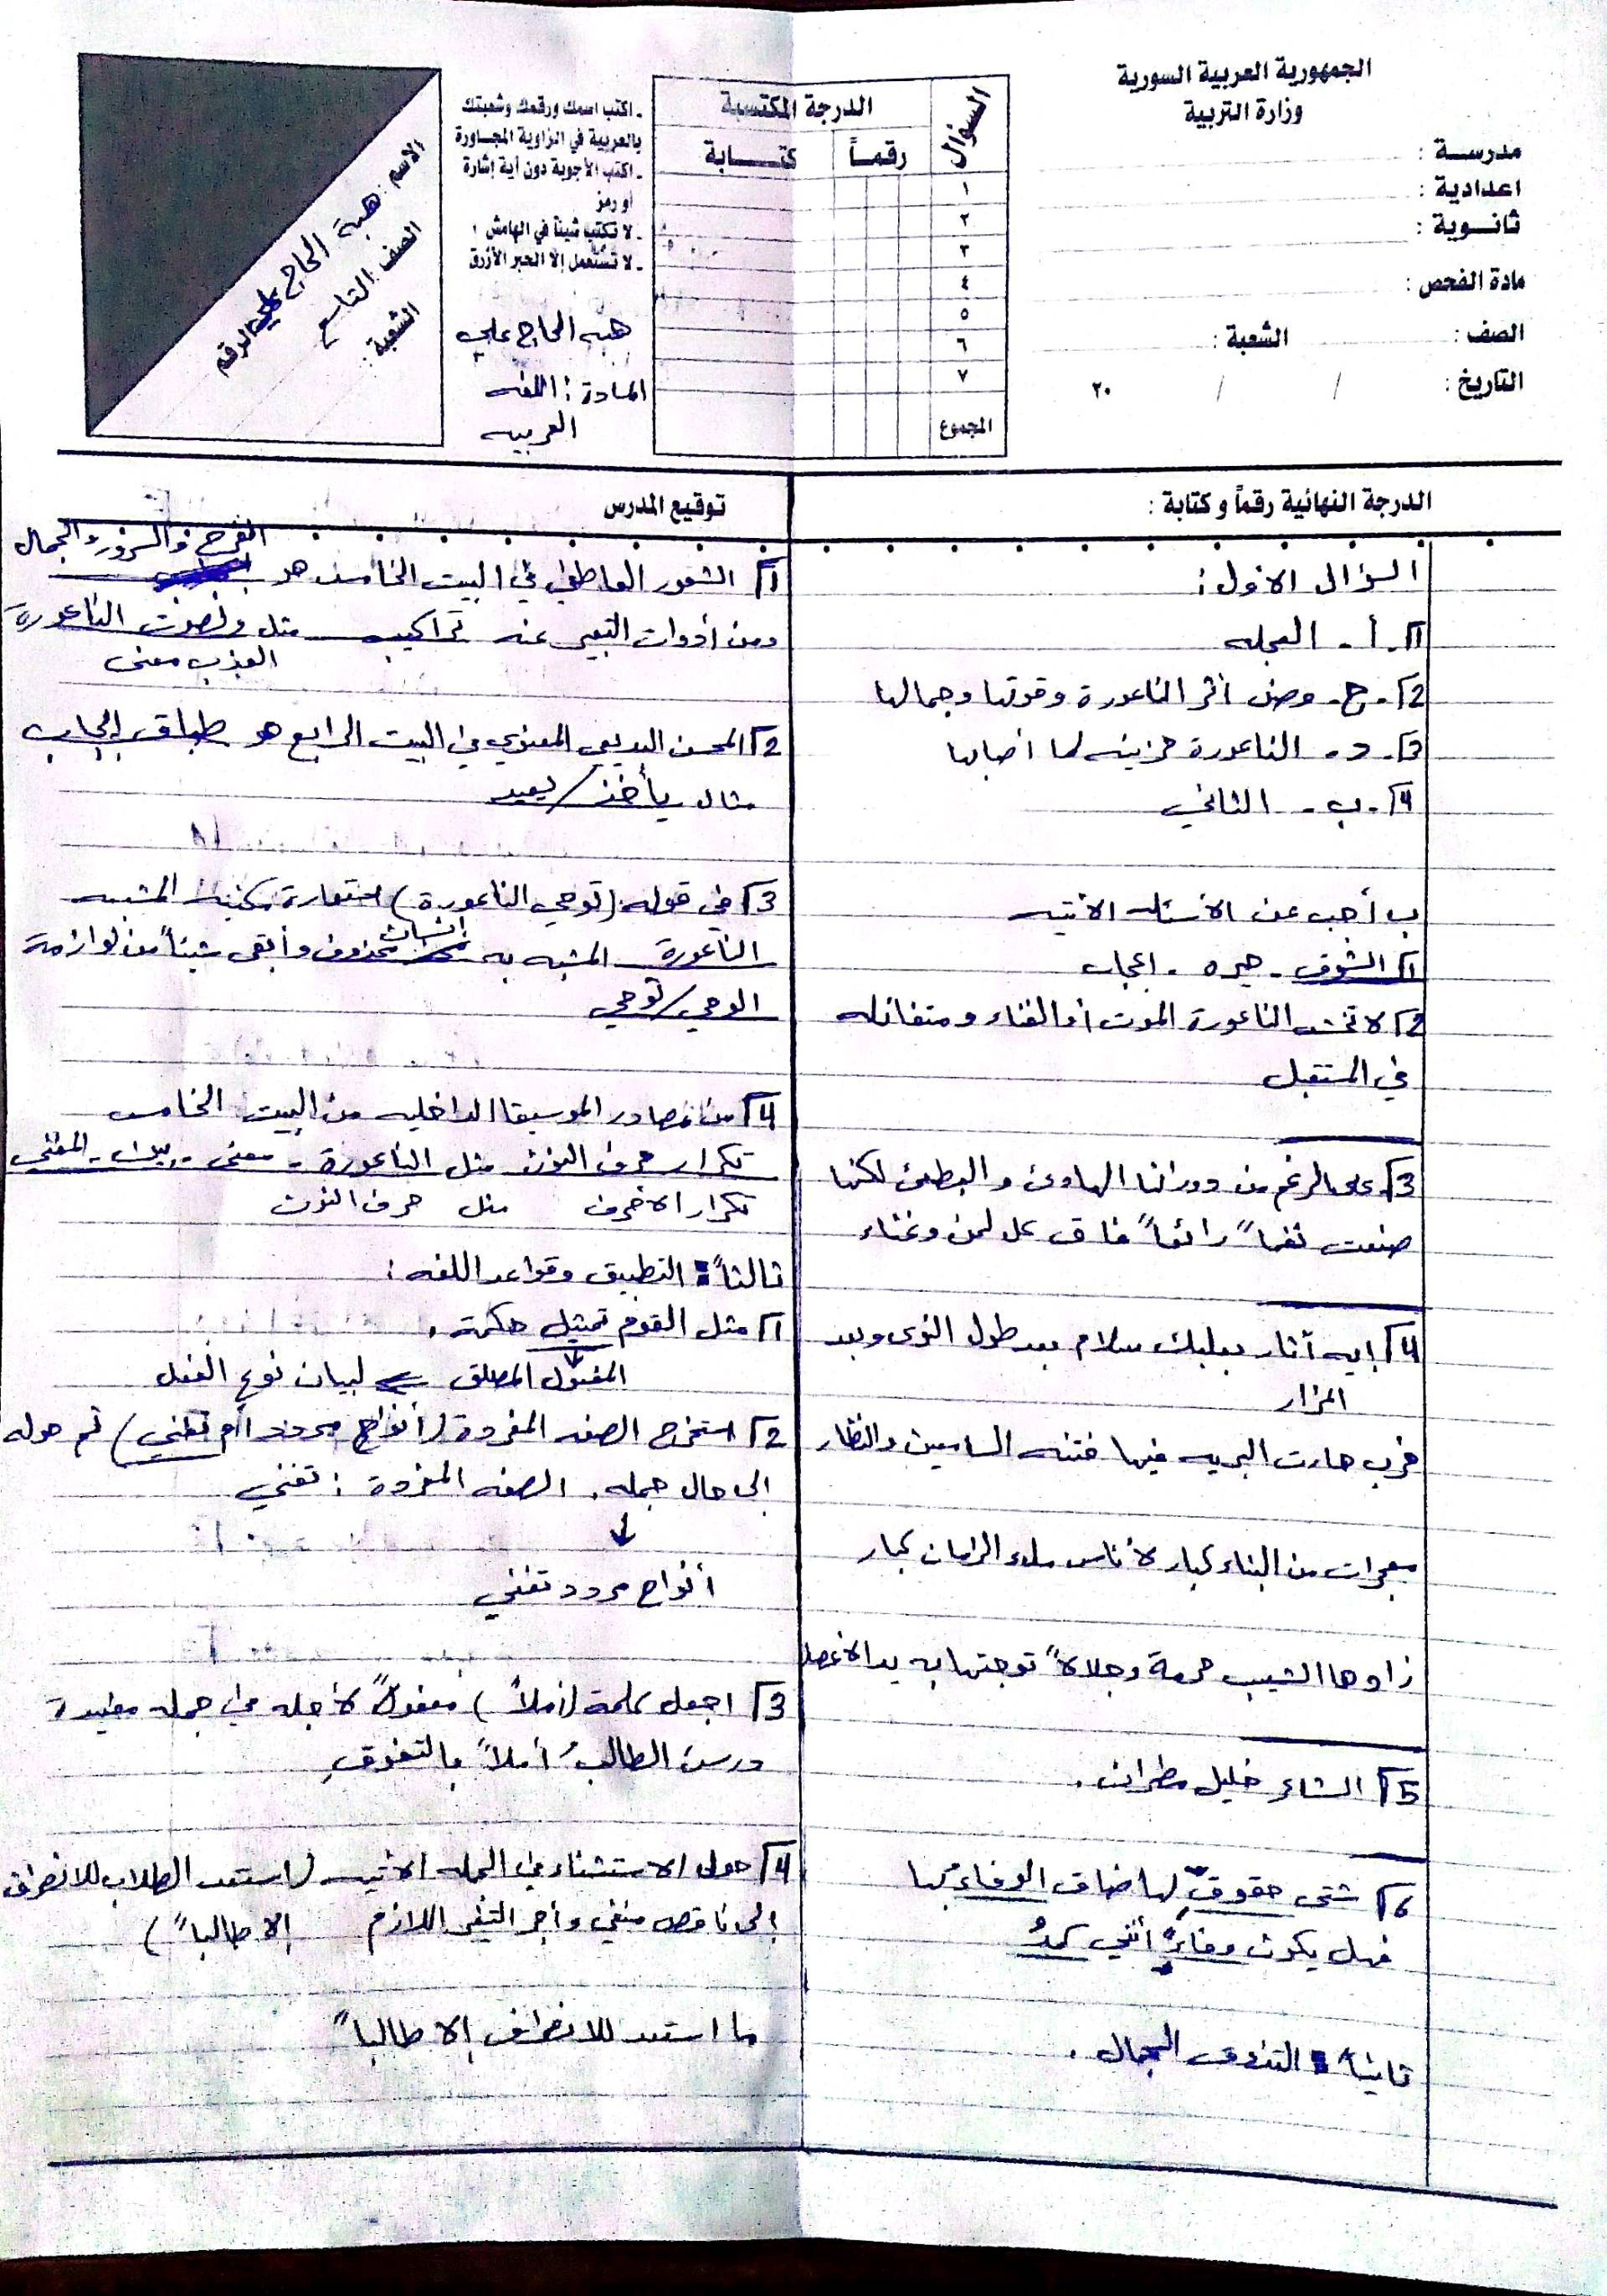 الجمهورية العربية السورية
وزارة التربية
مدرســة :
اعدادية :
ثانـوية :
مادة الفحص :
الصف : الشعبة :
التاريخ : / / ٢٠
السؤال
الدرجة المكتسبة
رقمـاً كتـــابة
١
٢
٣
٤
٥
٦
٧
المجموع
ـ اكتب اسمك ورقمك وشعبتك
بالعربية في الزاوية المجـاورة
ـ اكتب الأجوبة دون أية إشارة
أو رمز
ـ لا تكتب شيئاً في الهامش ؛
ـ لا تستعمل إلا الحبر الأزرق
هبه الحاج علي
المادة : اللغه
العربيه
الاسم : هبة الحاج علي الرقم
الصف : التاسع
الشعبة :
الدرجة النهائية رقماً وكتابة :
توقيع المدرس
السؤال الاول :
1. أ - العجله
2. ج - وصف أثر الناعورة وقوتها وجمالها
3. د - الناعورة حزينه لما اصابها
4. ب - الثاني
ب أجب عن الاسئله الاتيه
1 الشوق - حيره - اعجاب
2 لا تخشى الناعورة الموت أو الفناء ومتفائله
في المستقبل
3 على الرغم من دورانها الهادئ والبطئ لكنها
صنعت نغماً رائعاً فاق كل لحن وغناء
4 إيه آثار بعلبك سلام بعد طول النوى وبعد
المزار
خرب حارت البريه فيها فتنه السامعين والنظار
معجزات من البناء كبار لأناس ملء الزمان كبار
زادها الشيب حرمة وجلالاً توجتها به يد الاعصار
5 الشاعر خليل مطران .
6 شتى حقوقٍ لها ضاق الوفاء بها
فهل يكون وفاءً أنني كمدُ
ثانياً : التذوق الجمال .
1 الشعور العاطفي في البيت الخامس هو الفرح والسرور والجمال
ومن أدوات التعبير عنه تراكيب مثل ونصوت الناعورة
العذب معنى
2 المحسن البديعي المعنوي في البيت الرابع هو طباق إيجاب
مثال يأخذ / يعيد
3 في قوله (توحي الناعورة) استعارة مكنية المشبه
الناعورة المشبه به انسان محذوف وأبقى شيئاً من لوازمة
الوحي / توحي
4 من مصادر الموسيقا الداخليه من البيت الخامس
تكرار حرف النون مثل الناعورة - معنى - المغني
تكرار الاحرف مثل حرف النون
ثالثاً : التطبيق وقواعد اللغه :
1 مثل القوم تمثيل حكمة .
المفعول المطلق لبيان نوع الفعل
2 استخرج الصفه المفردة (أنواح مردد أم تغني) ثم حوله
إلى حال جمله . الصفه المفردة : تغني
أنواح مردد تغني
3 اجعل كلمة (أملاً) مفعولاً لأجله في جمله مفيدة
درسَ الطالبُ أملاً بالتفوقِ
4 حول الاستثناء في الجمله الاتيه (استعد الطلاب للانصراف
إلى ناقص منفي وأجر التغير اللازم إلا طالباً)
ما استعد للانصراف إلا طالباً